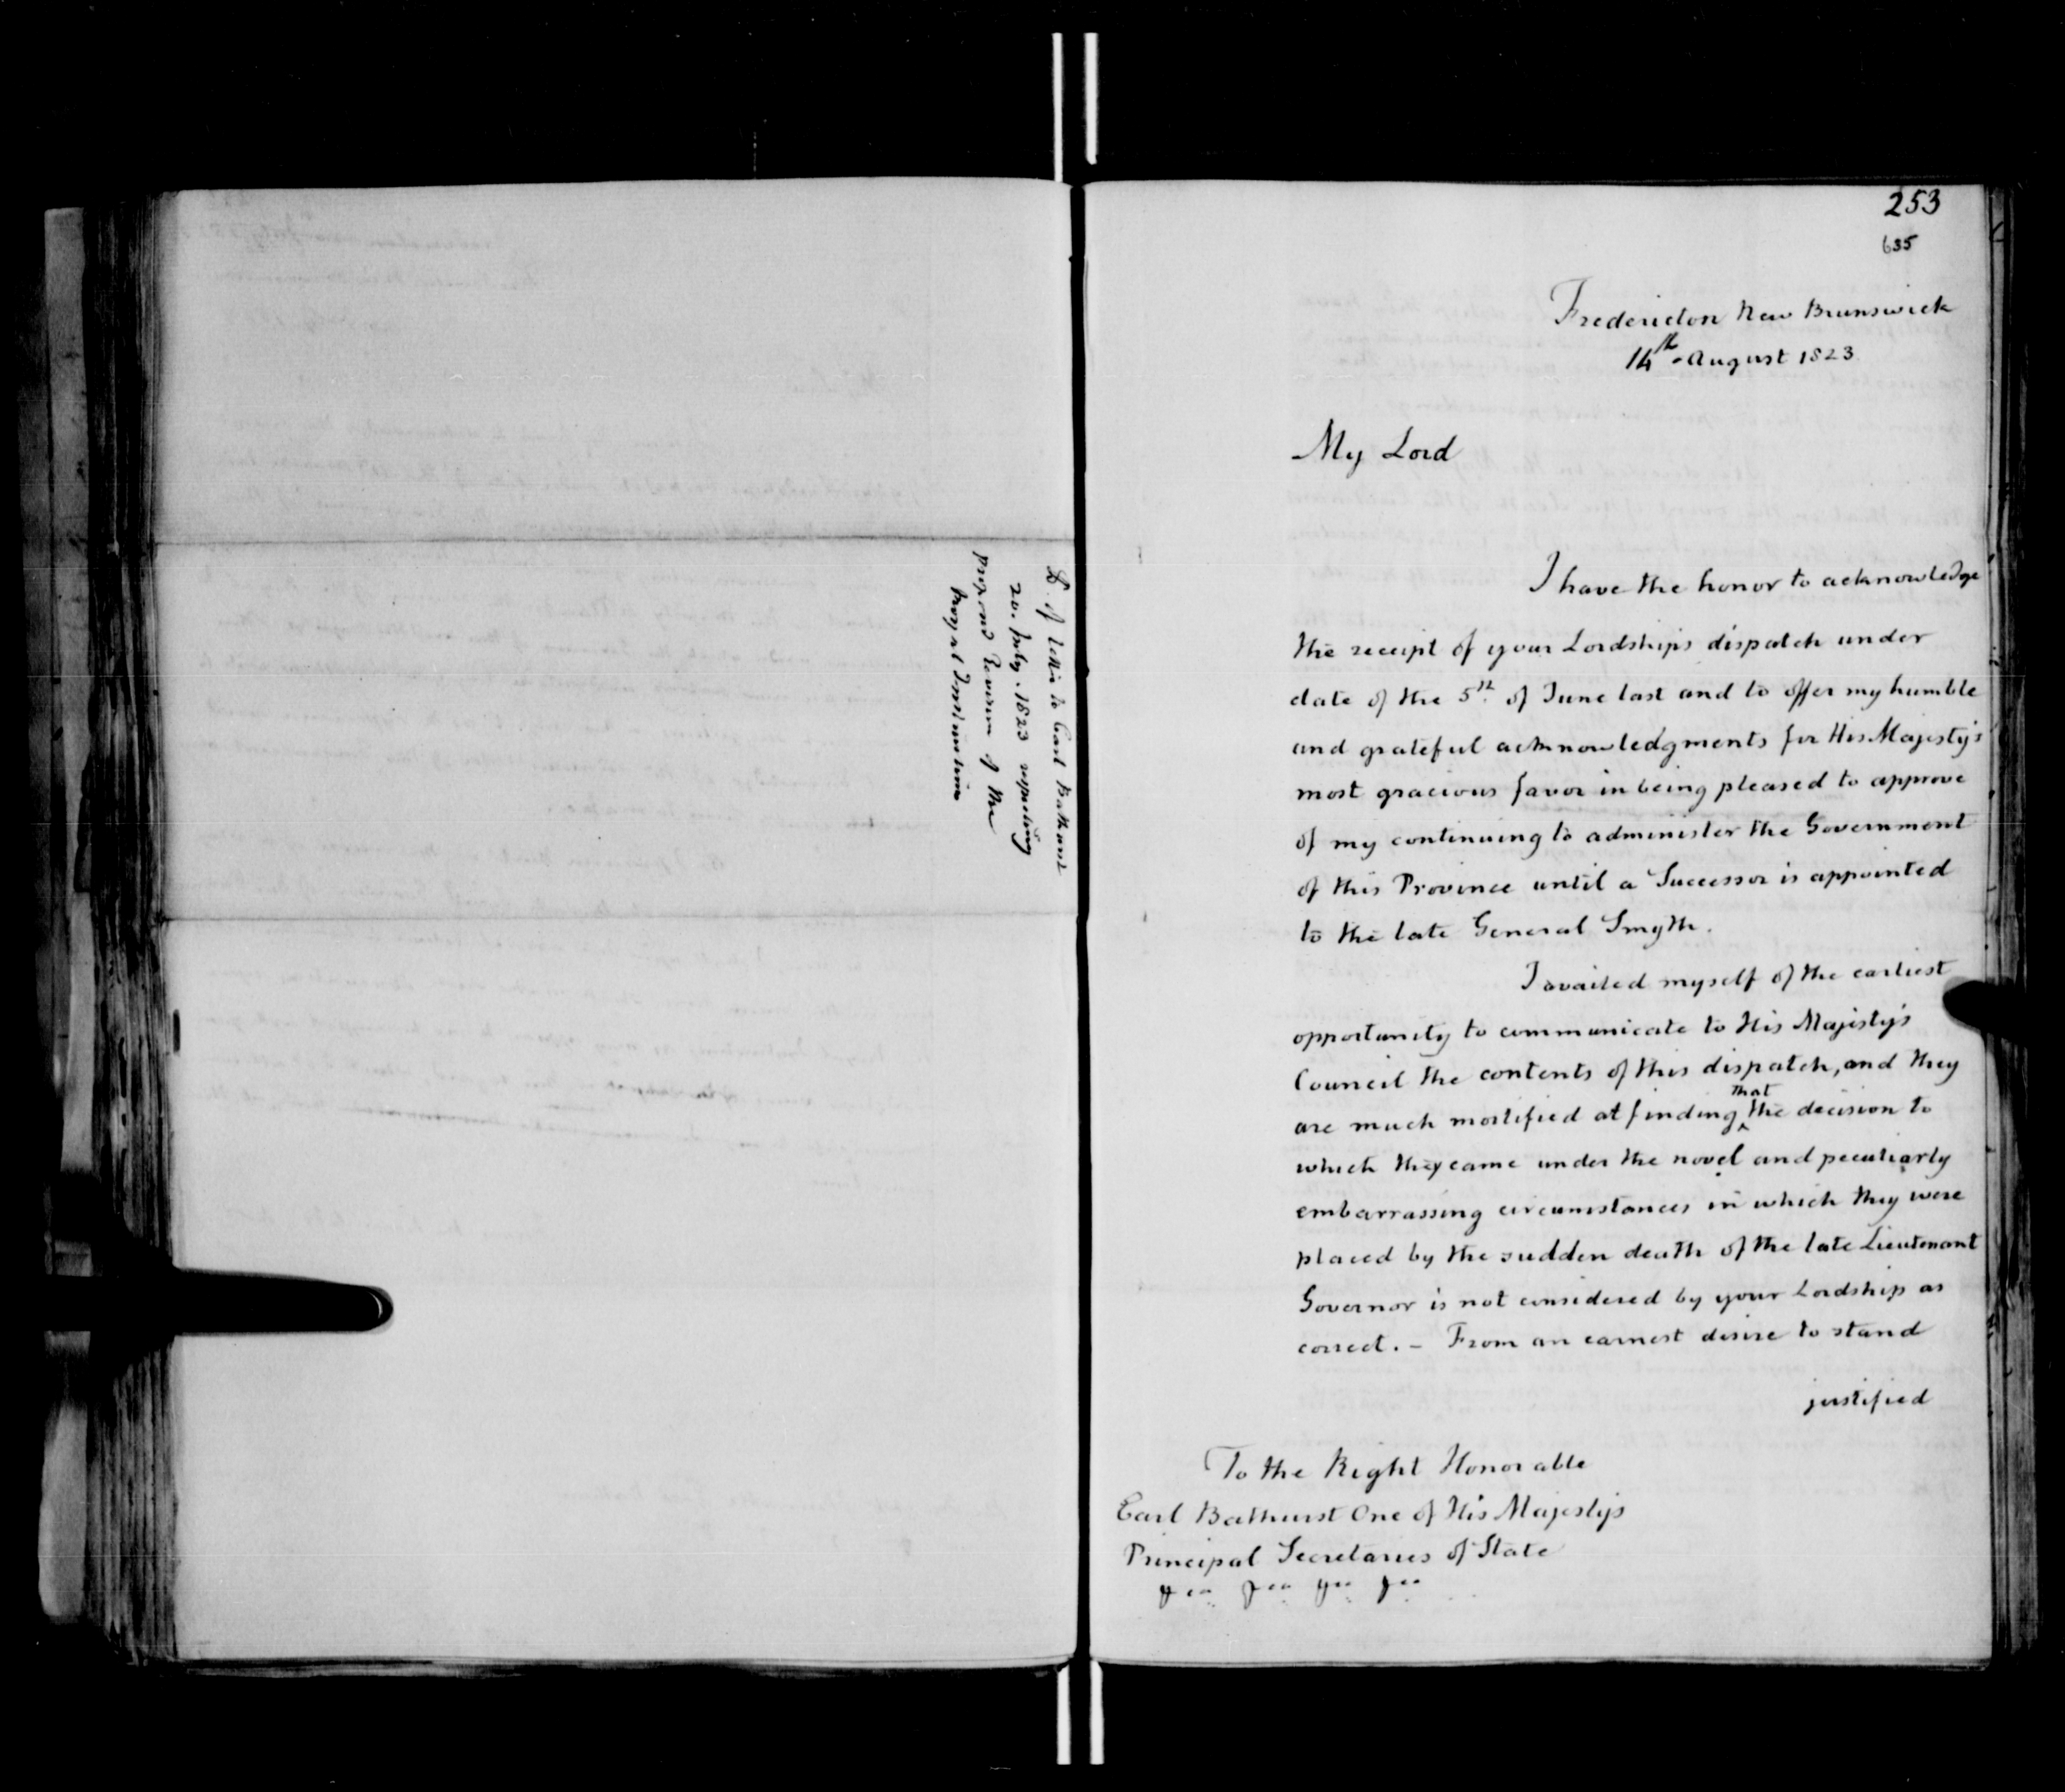 D. of Letter to Earl Bathurst
20. July. 1823 respecting
proposed Revision of the
Royal Instructions
253
635
Fredericton New Brunswick
14th August 1823
My Lord
I have the honor to acknowledge
the receipt of your Lordships dispatch under
date of the 5th of June last and to offer my humble
and grateful acknowledgments for His Majesty's
most gracious favor in being pleased to approve
of my continuing to administer the Government
of this Province until a Successor is appointed
to the late General Smyth.
I availed myself of the earliest
opportunity to communicate to His Majesty's
Council the contents of this dispatch, and they
are much mortified at finding that the decision to
which they came under the novel and peculiarly
embarrassing circumstances in which they were
placed by the sudden death of the late Lieutenant
Governor is not considered by your Lordship as
correct. – From an earnest desire to stand
justified
To the Right Honorable
Earl Bathurst One of His Majesty's
Principal Secretaries of State
&ca &ca &ca &ca